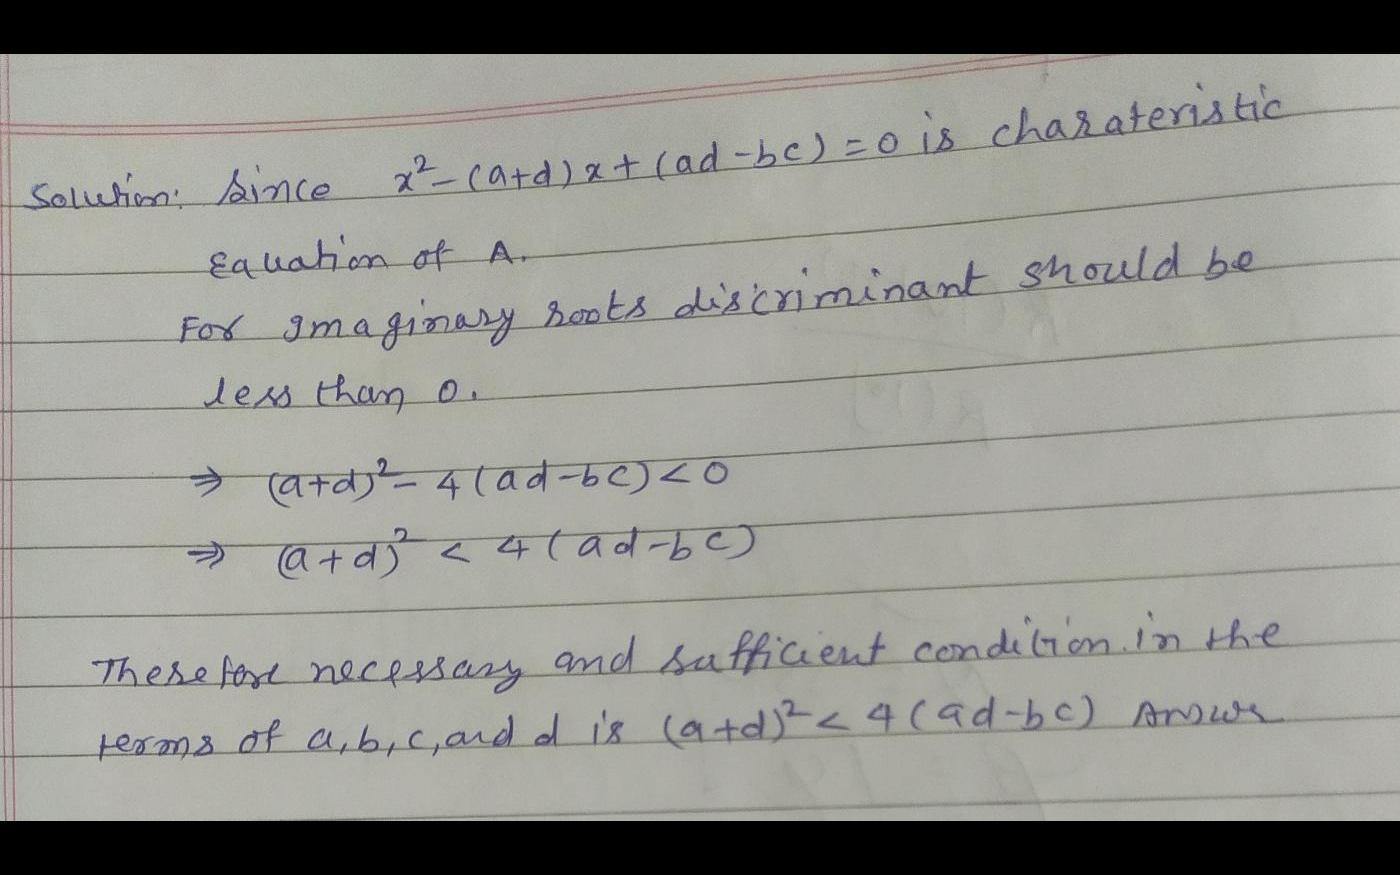 Solution: Since x² - (a+d)x + (ad-bc) = 0 is charateristic
Equation of A.
For Imaginary roots discriminant should be
less than 0.
⇒ (a+d)² - 4(ad-bc) < 0
⇒ (a+d)² < 4(ad-bc)
Therefore necessary and sufficient condition in the
terms of a, b, c, and d is (a+d)² < 4(ad-bc) Answer